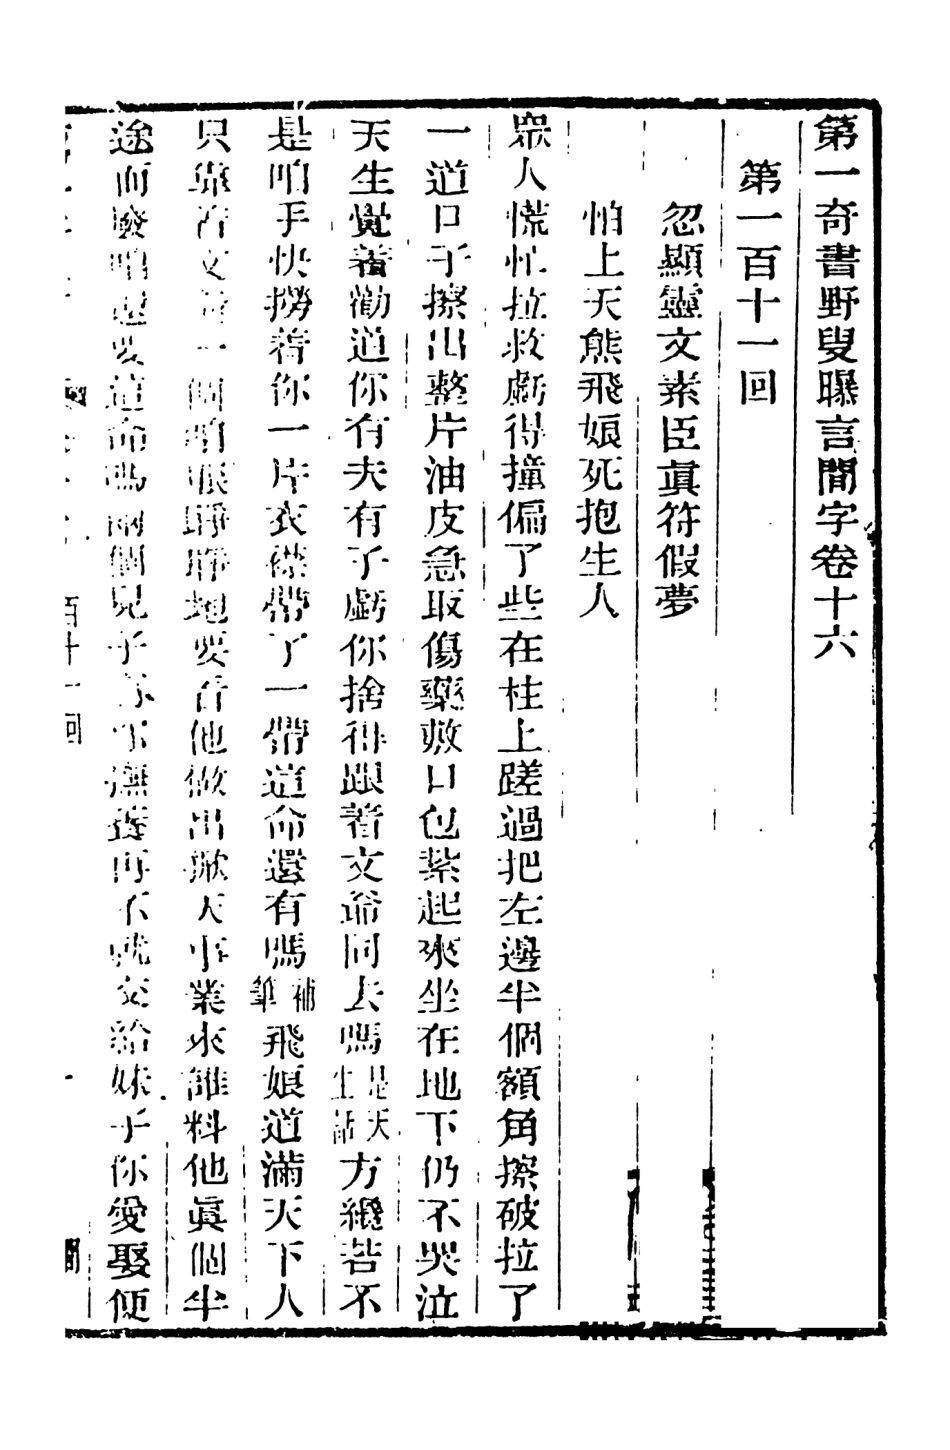 第一奇書野叟曝言間字卷十六
第一百十一回
忽顯靈文素臣眞符假夢
怕上天熊飛娘死抱生人
眾人慌忙拉救虧得撞偏了些在柱上蹉過把左邊半個額角擦破拉了
一道口子擦出整片油皮急取傷藥敷口包紮起來坐在地下仍不哭泣
天生覺着勸道你有夫有子虧你捨得跟着文爺同去嗎是天生話方纔若不
是咱手快撈着你一片衣襟帶了一帶這命還有嗎補筆飛娘道滿天下人
只靠着文爺一個咱眼睜睜地要看他做出掀天事業來誰料他眞個半
途而廢咱還要這命嗎兩個兒子撫養再不就交給妹子你愛娶便
百十一回
一
間